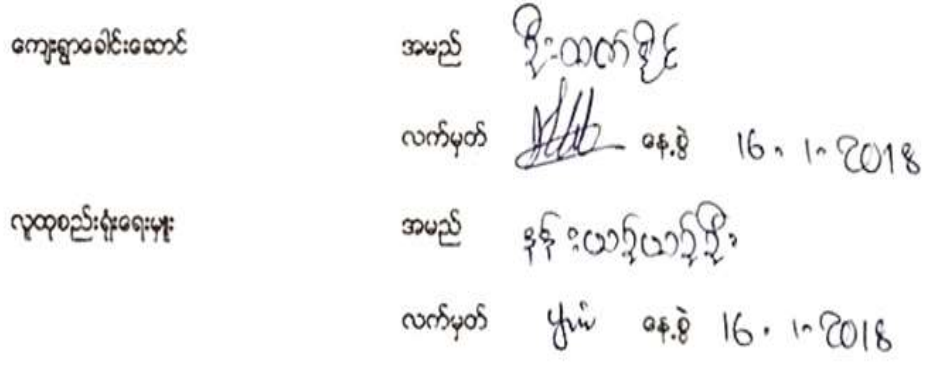 ကျေးရွာခေါင်းဆောင် အမည် ဦးထက်စိုင်
လက်မှတ် နေ့စွဲ 16.1.2018
လူထုစည်းရုံးရေးမှူး အမည် နန်းယဉ်ယဉ်ဦး
လက်မှတ် နေ့စွဲ 16.1.2018